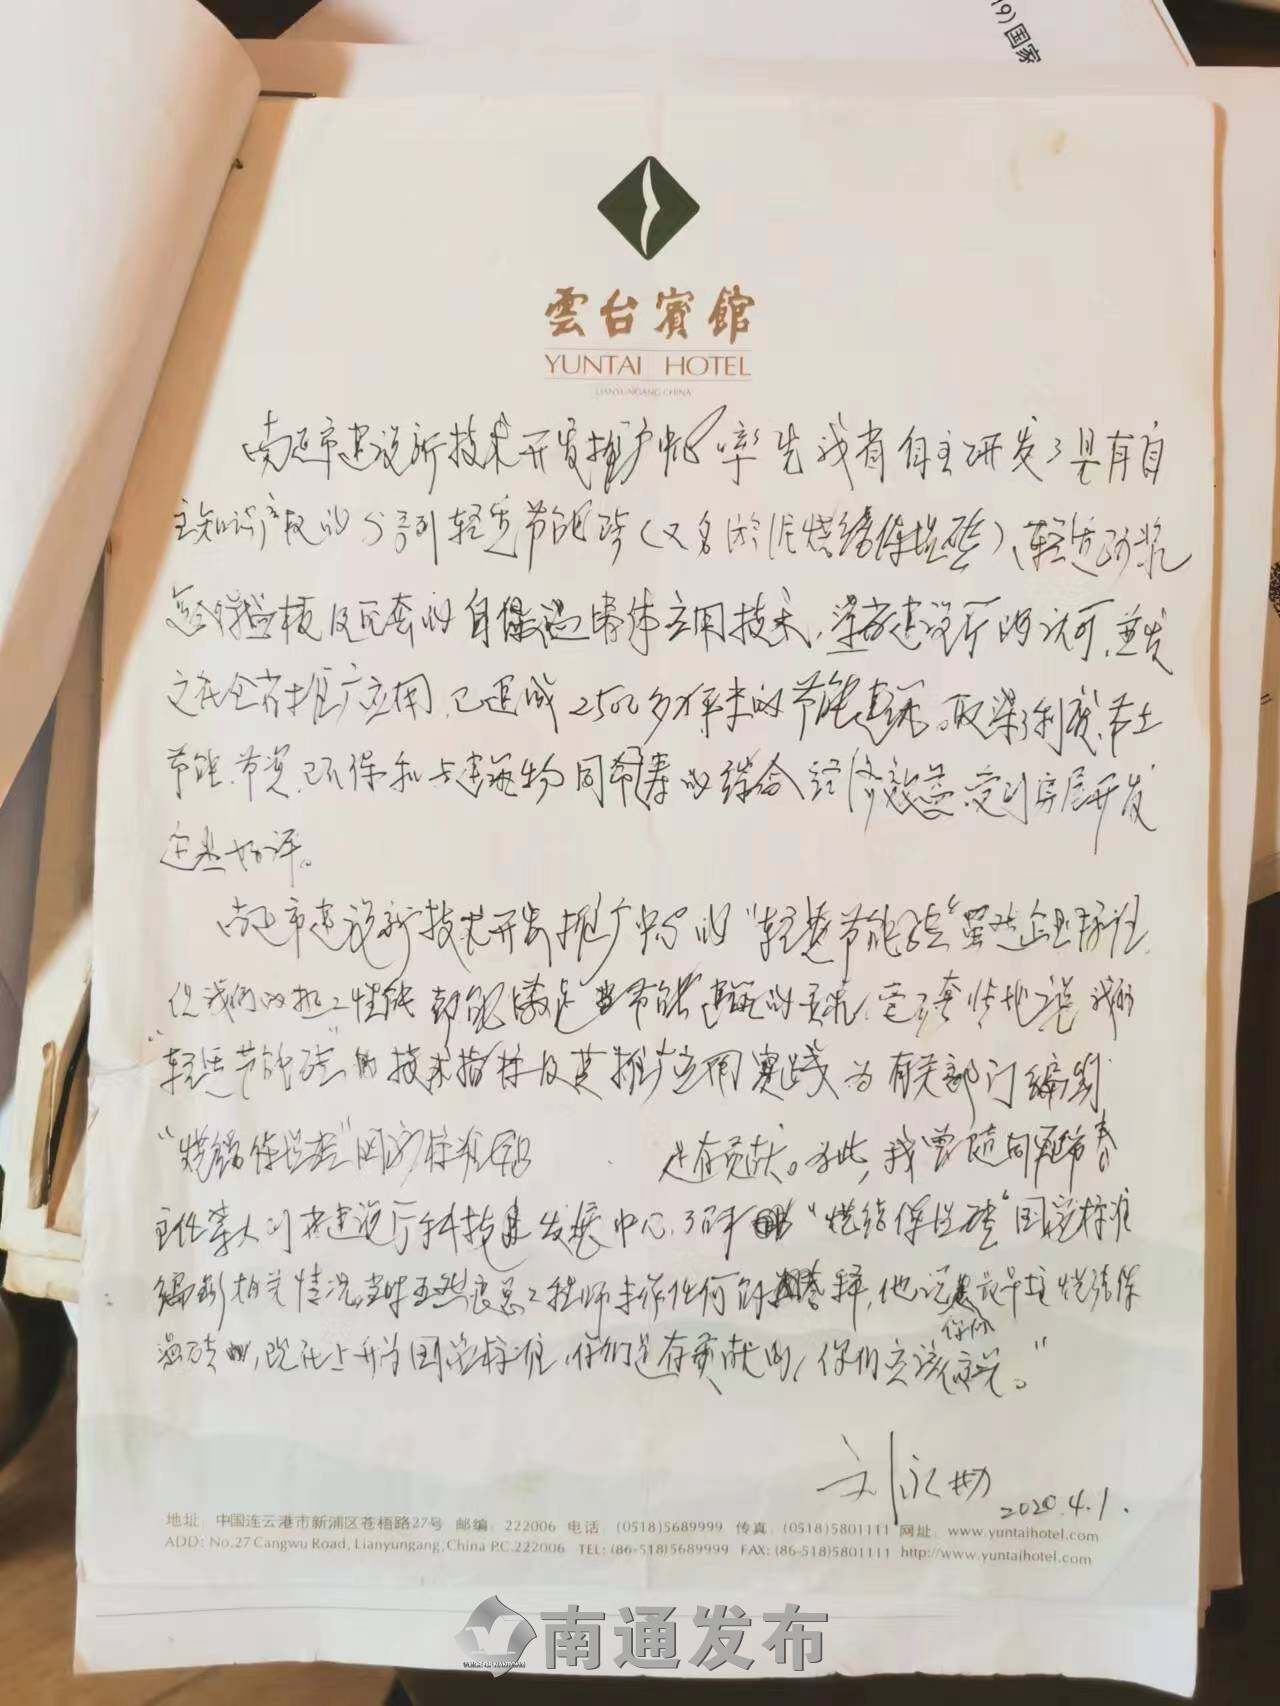 19)国家
雲台賓館
YUNTAI HOTEL
LIANYUNGANG CHINA
南通市建设新技术开发推广中心率先我省自主研发了具有自
主知识产权的 系列轻质节能砖(又名淤泥烧结保温砖)、轻质砂浆
及配套的自保温墙体应用技术, 省建设厅的认可,并发
文在全省推广应用,已建成2500多万平米的节能建筑。取得了利废、节土
节能、节资、环保和与建筑物同寿的综合经济效益,受到房屋开发
企业好评。
南通市建设新技术开发推广中心的“轻质节能砖”虽然企业标准,
但我们的热工性能都能满足节能建筑的要求,毫不夸张地说我们
“轻质节能砖”的技术指标及其推广应用实践为有关部门编制
“烧结保温砖”国家标准 是有贡献。为此,我曾随同
主任 人到省建设厅科技发展中心,了解“烧结保温砖”国家标准
编制相关情况,当时 总工程师未作任何解释,他说 最早 烧结保
温砖的,现在上升为国家标准,你们是有贡献的,你们应该 。”
你们
刘永
2020.4.1.
地址:中国连云港市新浦区苍梧路27号 邮编:222006 电话:(0518)5689999 传真:(0518)5801111 网址:www.yuntaihotel.com
ADD: No.27 Cangwu Road, Lianyungang, China P.C.222006 TEL: (86-518)5689999 FAX: (86-518)5801111 http://www.yuntaihotel.com
南通发布